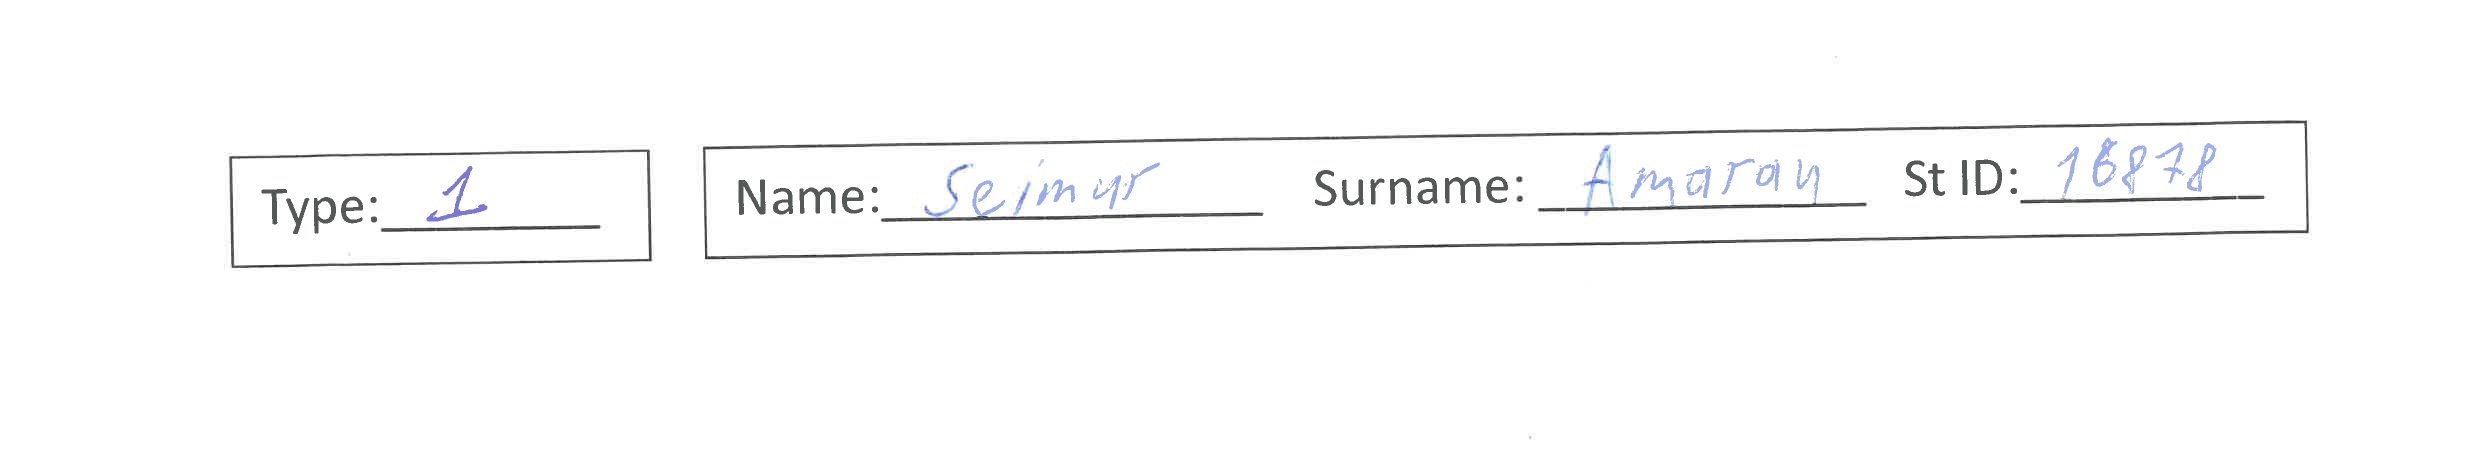 Type: 1 Name: Seimur Surname: Amaray St ID: 16878